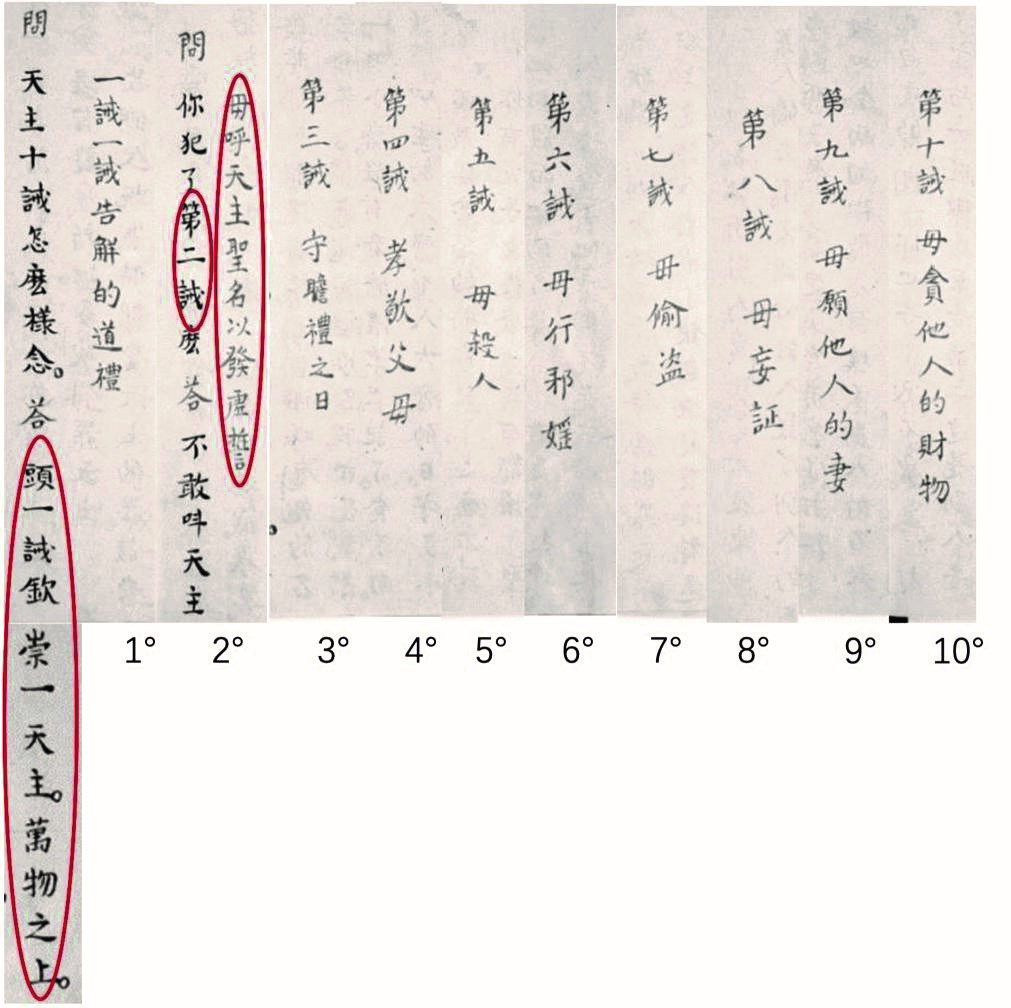 問 天主十誡怎麽樣念。荅 頭一誡欽崇一天主。萬物之上。
一誡一誡告解的道禮
問 你犯了第二誡麽 荅 不敢呌天主
毋呼天主聖名以發虛誓
第三誡 守瞻禮之日
第四誡 孝敬父母
第五誡 毋殺人
第六誡 毋行邪婬
第七誡 毋偷盜
第八誡 毋妄証
第九誡 毋願他人的妻
第十誡 毋貪他人的財物
1° 2° 3° 4° 5° 6° 7° 8° 9° 10°